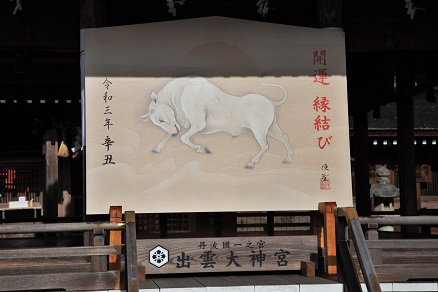 開運 縁結び
令和三年 辛丑
丹波國一之宮
出雲大神宮